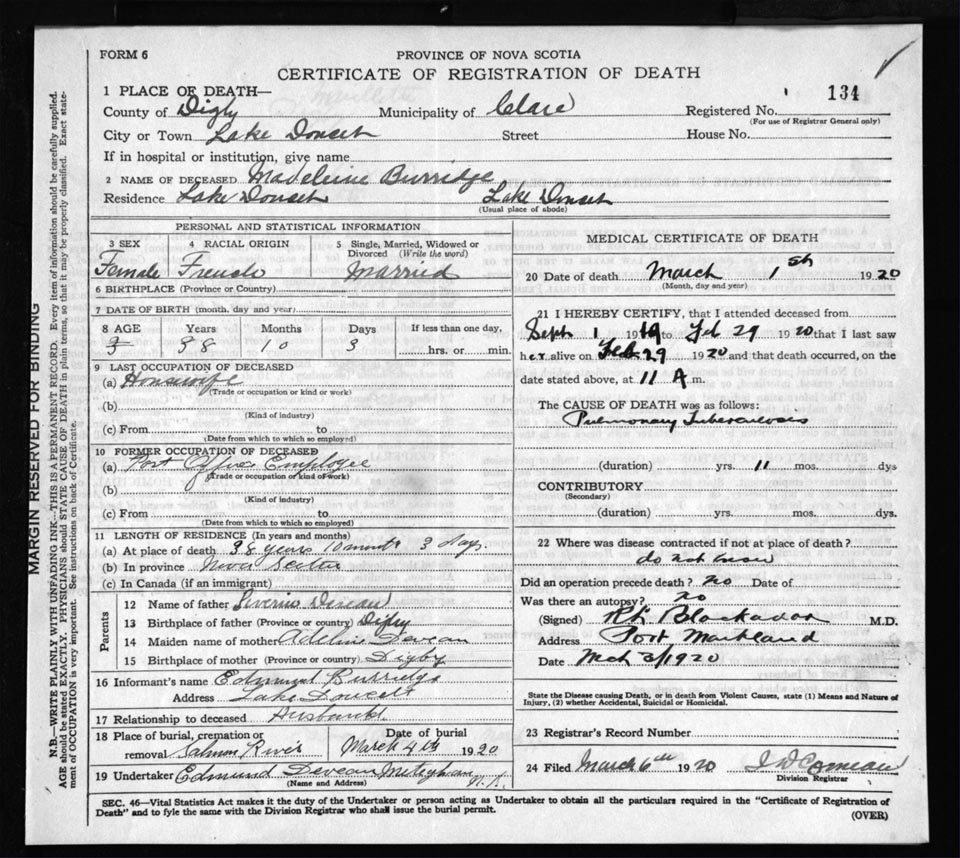 FORM 6
PROVINCE OF NOVA SCOTIA
CERTIFICATE OF REGISTRATION OF DEATH
134
1 PLACE OF DEATH—
County of Digby Municipality of Clare Registered No.
(For use of Registrar General only)
City or Town Lake Doucet Street House No.
If in hospital or institution, give name
2 NAME OF DECEASED Madeleine Burridge
Residence Lake Doucet Lake Doucet
(Usual place of abode)
PERSONAL AND STATISTICAL INFORMATION
3 SEX 4 RACIAL ORIGIN 5 Single, Married, Widowed or Divorced (Write the word)
Female French Married
6 BIRTHPLACE (Province or Country)
7 DATE OF BIRTH (month, day and year)
8 AGE Years Months Days If less than one day,
38 10 3 hrs. or min.
9 LAST OCCUPATION OF DECEASED
(a) Housewife
(Trade or occupation or kind or work)
(b)
(Kind of industry)
(c) From to
(Date from which to which so employed)
10 FORMER OCCUPATION OF DECEASED
(a) Post Office Employee
(Trade or occupation or kind of work)
(b)
(Kind of industry)
(c) From to
(Date from which to which so employed)
11 LENGTH OF RESIDENCE (In years and months)
(a) At place of death 38 years 10 months 3 days.
(b) In province Nova Scotia
(c) In Canada (if an immigrant)
Parents
12 Name of father Deveau
13 Birthplace of father (Province or country) Digby
14 Maiden name of mother Adeline Deveau
15 Birthplace of mother (Province or country) Digby
16 Informant's name Edmund Burridge
Address Lake Doucett
17 Relationship to deceased Husband
18 Place of burial, cremation or removal Salmon River Date of burial March 4th 1920
19 Undertaker Edmund Deveau Meteghan N.S.
(Name and Address)
MEDICAL CERTIFICATE OF DEATH
20 Date of death March 1st 1920
(Month, day and year)
21 I HEREBY CERTIFY, that I attended deceased from
Sept 1 1919 to Feb 29 1920 that I last saw
her alive on Feb 29 1920 and that death occurred, on the
date stated above, at 11 A m.
The CAUSE OF DEATH was as follows:
Pulmonary Tuberculosis
(duration) yrs. 11 mos. dys
CONTRIBUTORY
(Secondary)
(duration) yrs. mos. dys.
22 Where was disease contracted if not at place of death?
do not know
Did an operation precede death? no Date of
Was there an autopsy? no
(Signed) M.D.
Address Port Maitland
Date Mch 3/1920
State the Disease causing Death, or in death from Violent Causes, state (1) Means and Nature of
Injury, (2) whether Accidental, Suicidal or Homicidal.
23 Registrar's Record Number
24 Filed March 6th 1920 Comeau
Division Registrar
SEC. 46—Vital Statistics Act makes it the duty of the Undertaker or person acting as Undertaker to obtain all the particulars required in the "Certificate of Registration of
Death" and to fyle the same with the Division Registrar who shall issue the burial permit.
(OVER)
MARGIN RESERVED FOR BINDING
N.B.—WRITE PLAINLY WITH UNFADING INK—THIS IS A PERMANENT RECORD. Every item of information should be carefully supplied.
AGE should be stated EXACTLY. PHYSICIANS should STATE CAUSE OF DEATH in plain terms, so that it may be properly classified. Exact state-
ment of OCCUPATION is very important. See instructions on back of Certificate.